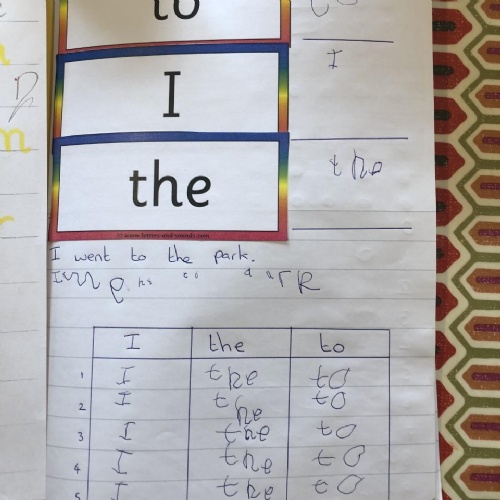 to
to
I
I
the
the
© www.letters-and-sounds.com
I went to the park.
I the to
1 I the to
2 I the to
3 I the to
4 I the to
5 I the to